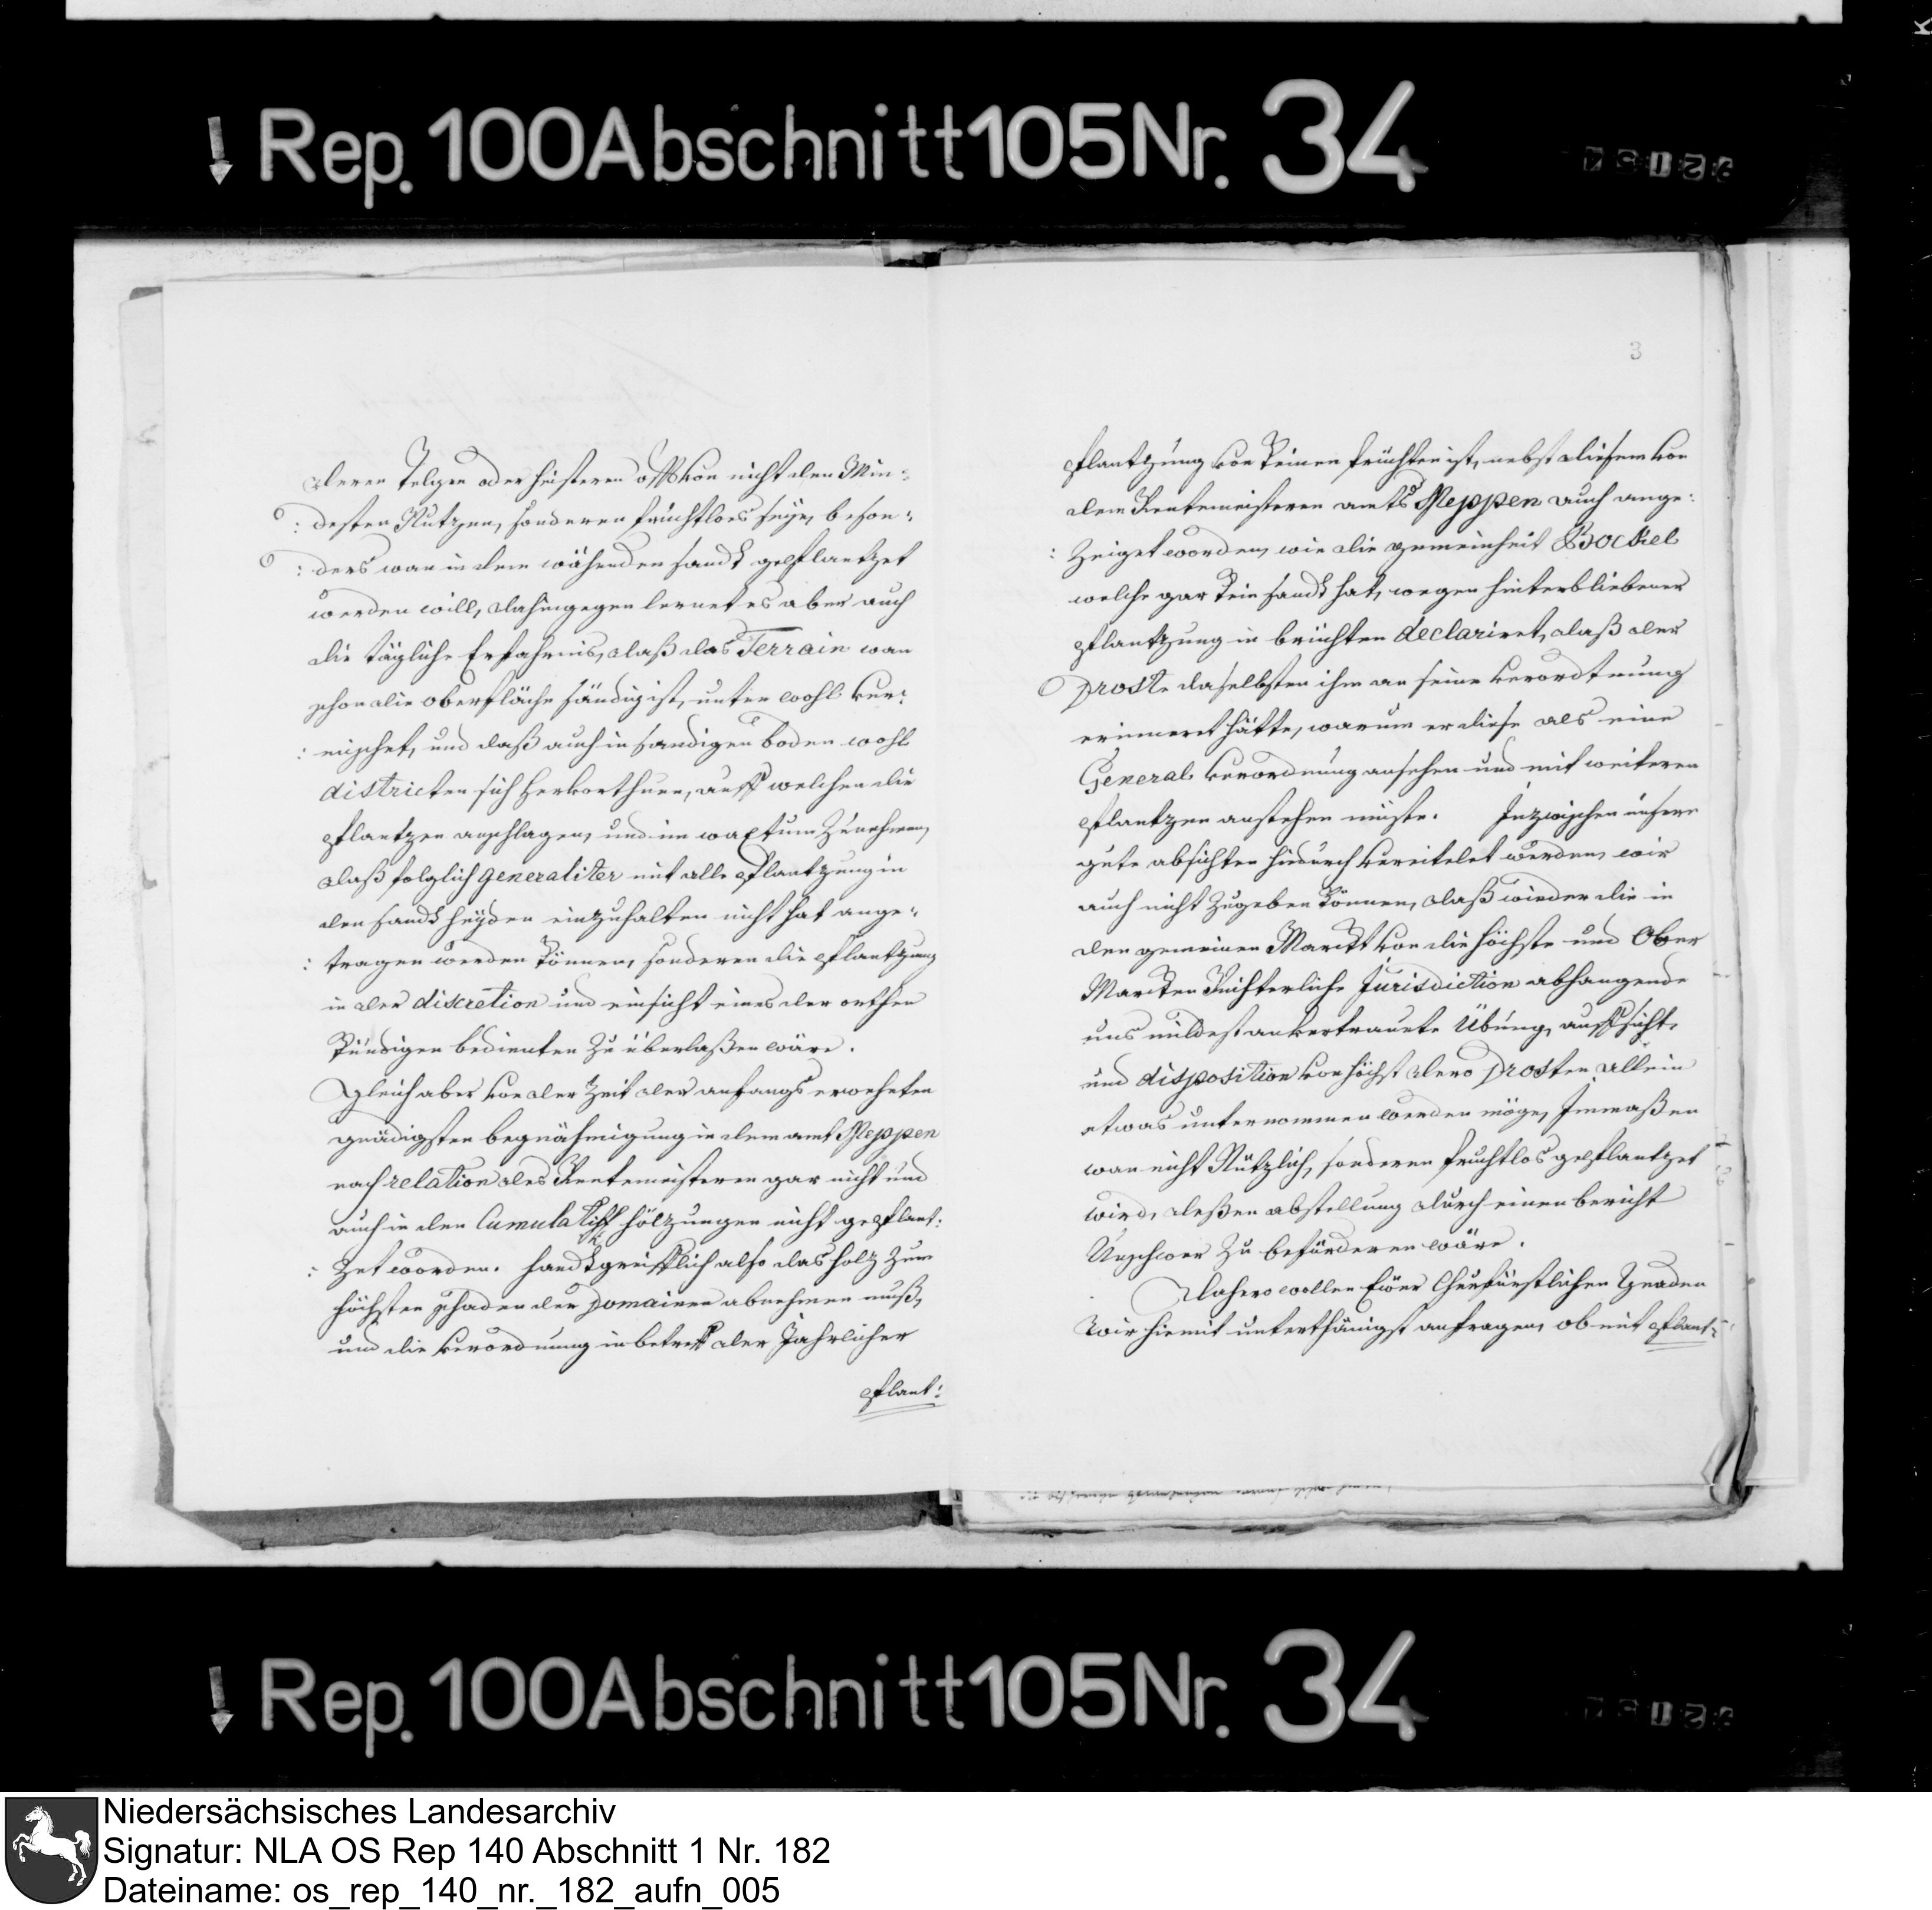 Rep. 100 Abschnitt 105 Nr. 34
deren Telgen oder heisteren offt von nicht den Min=
: desten Nutzen, sonderen fruchtloes seÿe, beson=
: ders wan in dem wähenden sandt gepflantzet
werden will, dahingegen lernet es aber auch
die tägliche Erfahrnis, daß das Terrain wan
schon die oberfläche sändig ist, unten wohl ver=
: mischet, und daß auch in sandigen boden wohl
districten sich hervorthuen, auff welchen die
pflantzen anschlagen, und im waxtum Zunehmen,
daß folglich generaliter mit alle pflantzung in
den sandt heÿden einzuhalten nicht hat ange=
: tragen werden können, sonderen die pflantzung
in der discretion und einsicht eines der orthen
Kündigen bedienten Zu überlaßen wäre.
Gleich aber von der Zeit der anfangs erwehnten
gnädigsten begnähmigung in dem amt Meppen
nach relation des Rentemeisteren gar nicht und
auch in den Cumulativ hölzungen nicht gepflant=
: Zet worden. handtgreifflich also das holz Zum
höchsten schaden der Domainen abnehmen muß,
und die verordnung in betreff der Jährlicher
pflant=
3
pflantzung von keinen früchten ist, nebst diesem von
dem Rentemeisteren amts Meppen auch ange=
: Zeiget worden, wie die gemeinheit Bockel
welche gar kein sandt hat, wegen hinterbliebener
pflantzung in brüchten declariret, daß der
Droste daselbsten ihm an seine verordtnung
erinneret hätte, warum er diese als eine
General verordnung ansehen und mit weiteren
pflantzen anstehen müste. Inzwischen unsere
gute absichten hiedurch vereitelet werden, wir
auch nicht Zugeben können, daß wieder die in
den gemeinen Marckt von die höchste und Ober
Marcken Richterliche Jurisdiction abhangende
uns mildest anvertrauete Übung, auffsicht,
und disposition von höchst dero Drosten allein
etwas unternommen werden möge, Immaßen
wan nicht Nützlich, sonderen fruchtlos gepflantzet
wird, deßen abstellung durch einen bericht
Unschwer Zu beförderen wäre.
Dahero wollen Ewer Churfürstlichen Gnaden
Wir hiemit unterthänigst anfragen, ob mit pflant=
Rep. 100 Abschnitt 105 Nr. 34
Niedersächsisches Landesarchiv
Signatur: NLA OS Rep 140 Abschnitt 1 Nr. 182
Dateiname: os_rep_140_nr._182_aufn_005